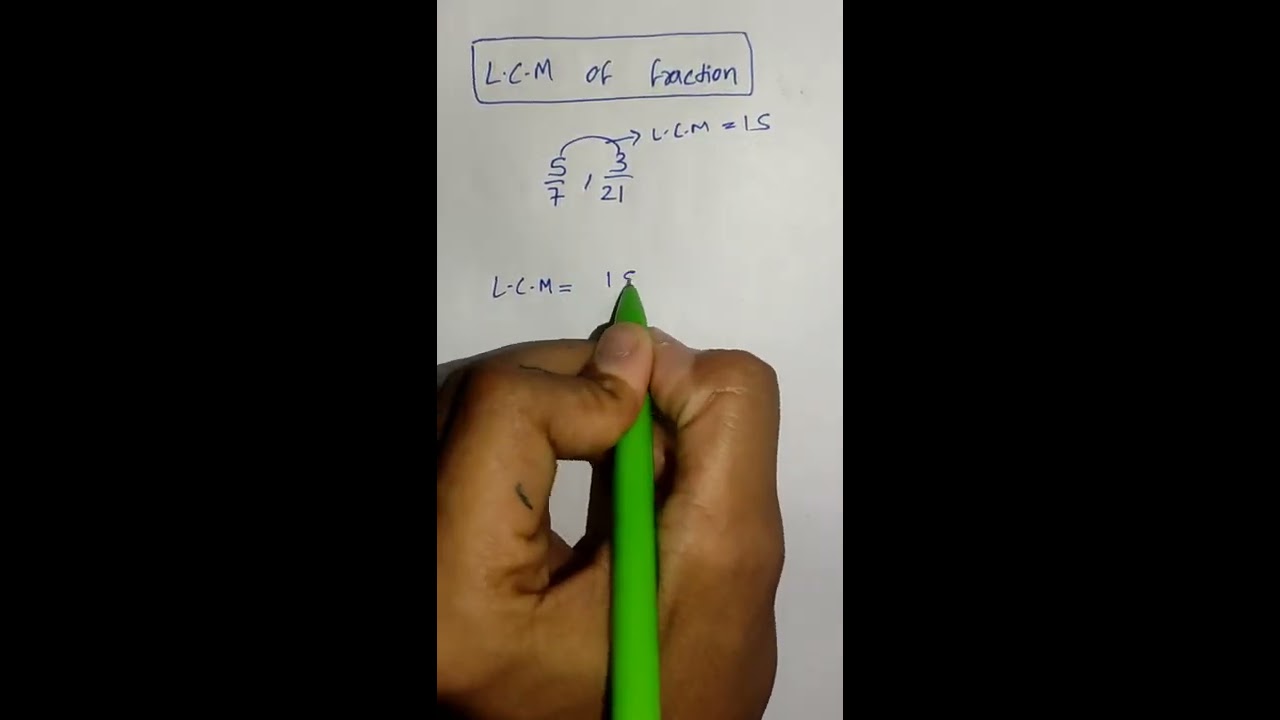 L.C.M of fraction
L.C.M = 15
5/7 , 3/21
L.C.M = 15